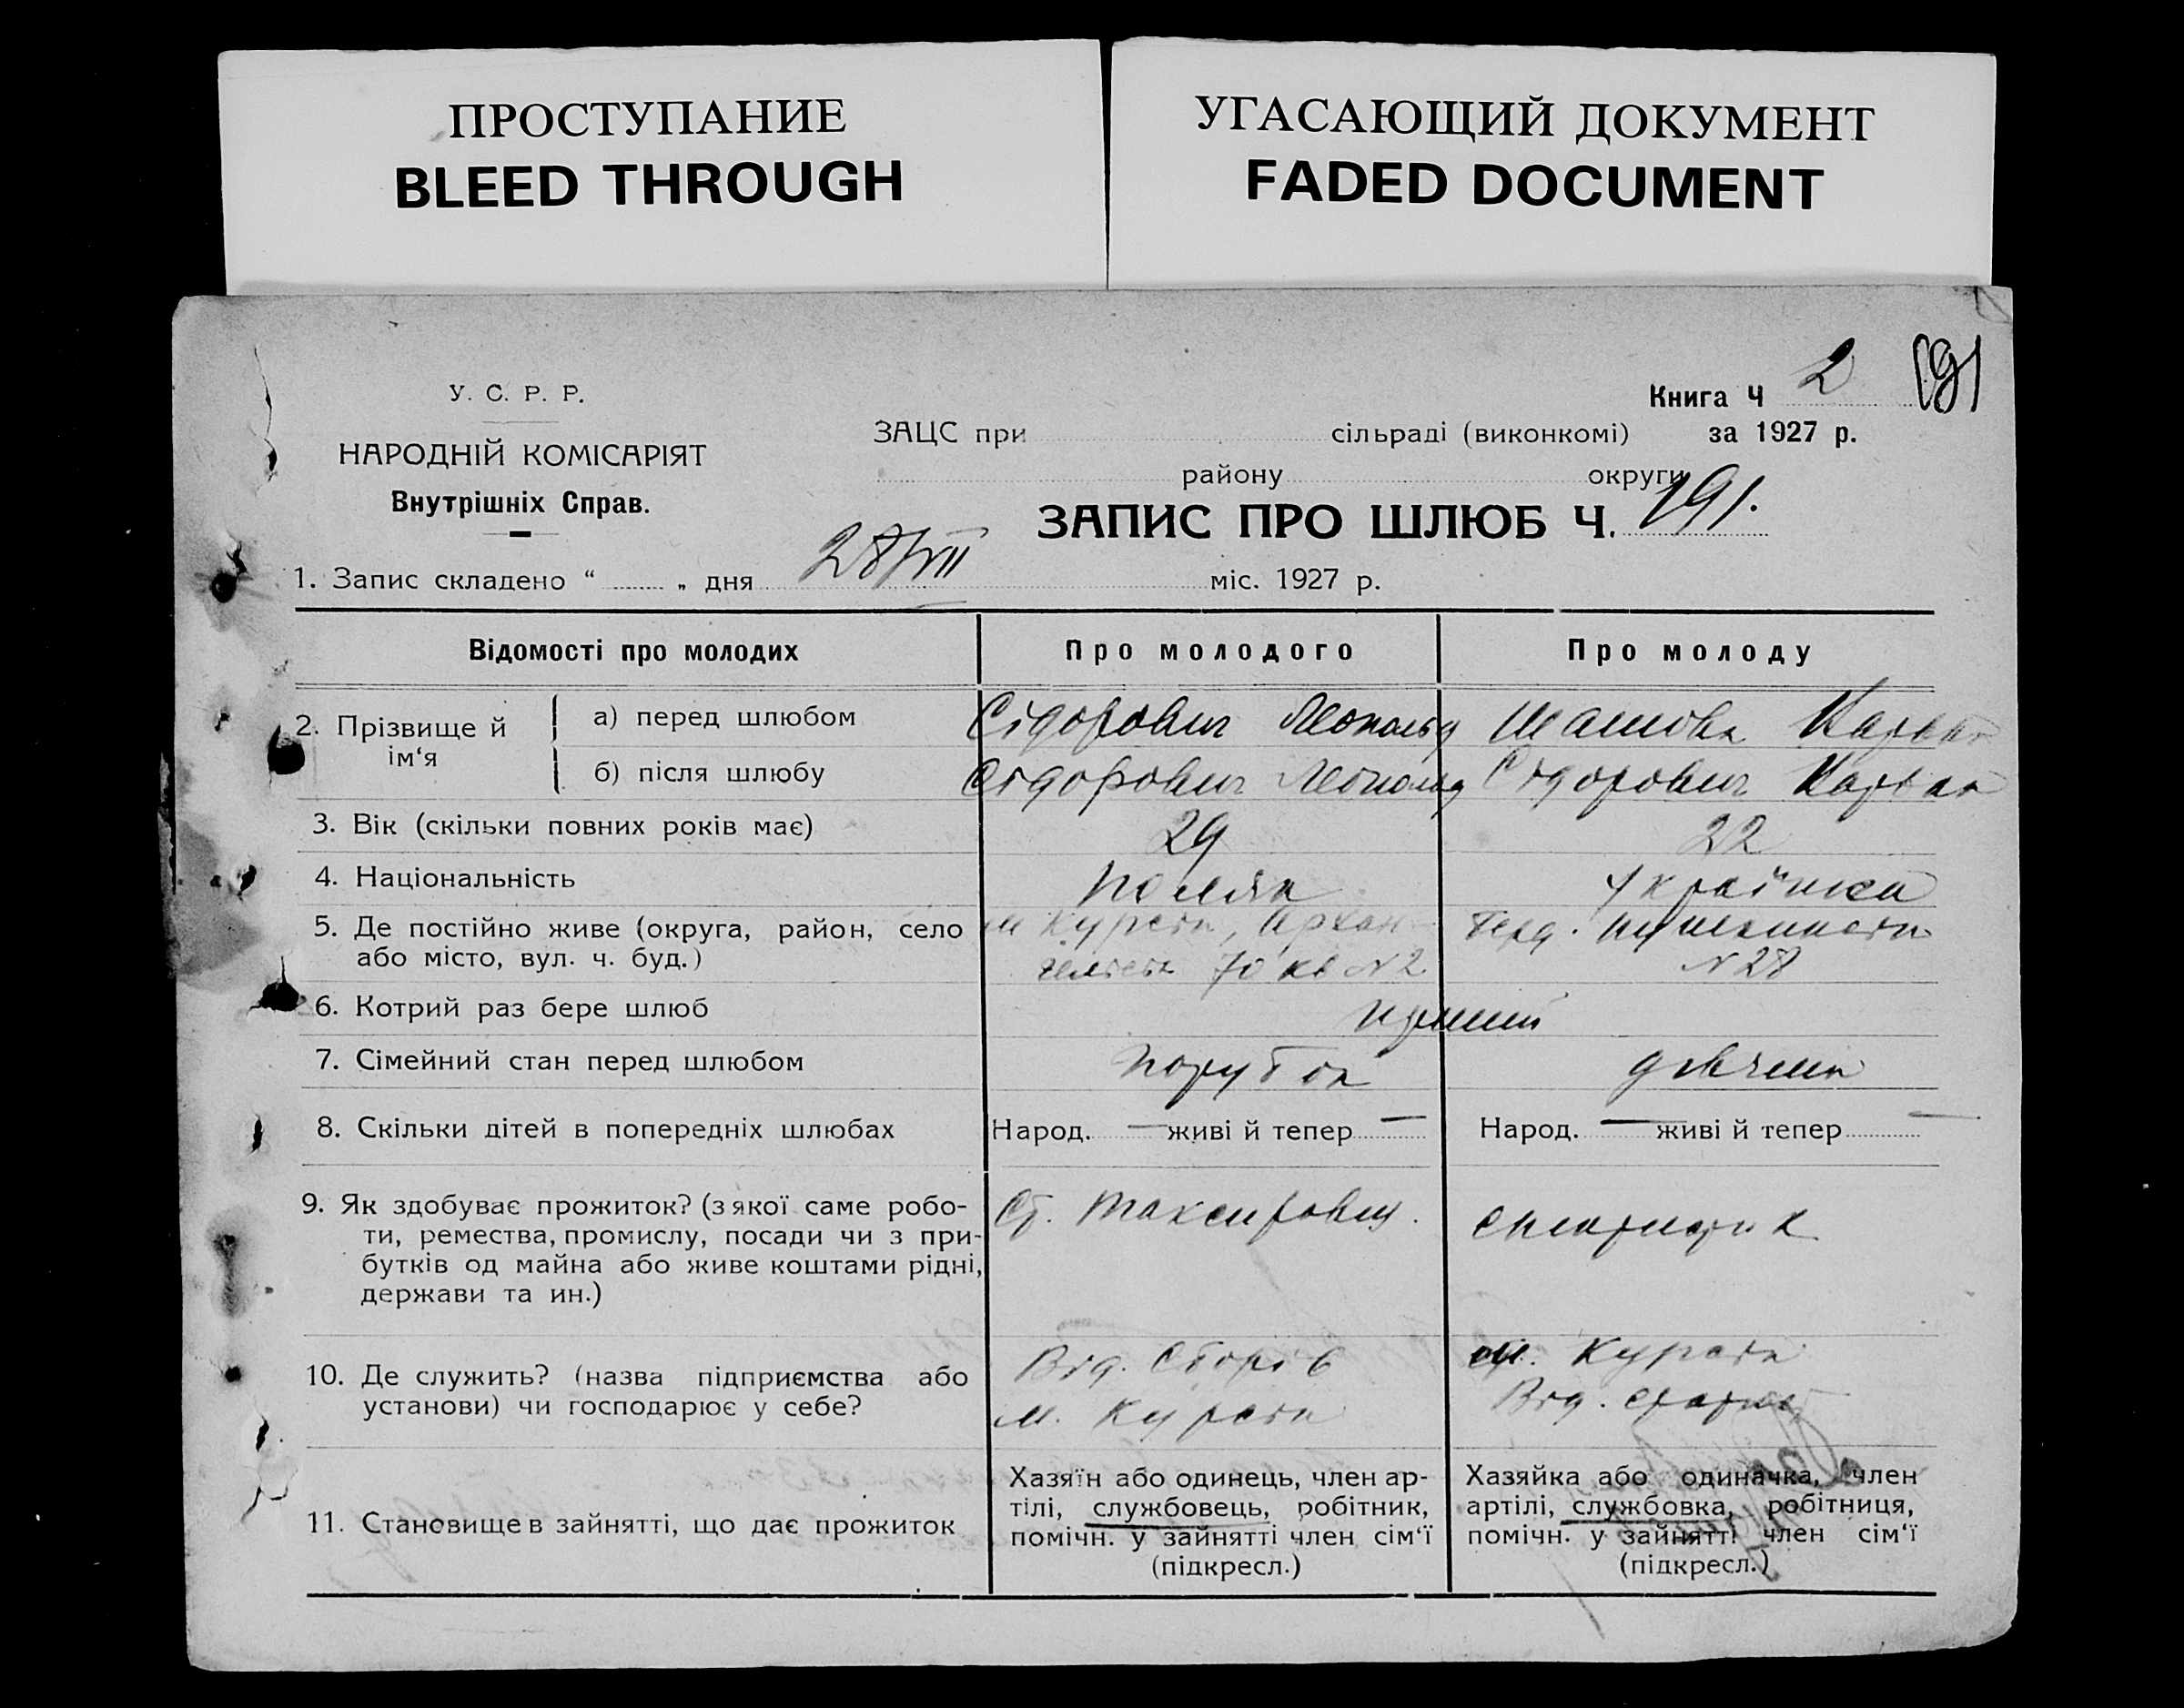 ПРОСТУПАНИЕ
BLEED THROUGH
УГАСАЮЩИЙ ДОКУМЕНТ
FADED DOCUMENT
У. С. Р. Р.
НАРОДНІЙ КОМІСАРІЯТ
Внутрішніх Справ.
Книга Ч 2 191
ЗАЦС при сільраді (виконкомі) за 1927 р.
району округи
ЗАПИС ПРО ШЛЮБ Ч. 191.
1. Запис складено “ „ дня 28/VII міс. 1927 р.
Відомості про молодих Про молодого Про молоду
2. Прізвище й ім‘я
а) перед шлюбом Сідорович Леопольд
б) після шлюбу Сідорович Леопольд Сідорович
3. Вік (скільки повних років має) 29 22
4. Національність поляк українка
5. Де постійно живе (округа, район, село м Курськ, Архан
або місто, вул. ч. буд.) гельськ 70 кв N 2 N 28
6. Котрий раз бере шлюб перший
7. Сімейний стан перед шлюбом парубок дівчина
8. Скільки дітей в попередніх шлюбах Народ. — живі й тепер — Народ. — живі й тепер —
9. Як здобуває прожиток? (з якої саме робо-
ти, ремества, промислу, посади чи з при-
бутків од майна або живе коштами рідні,
держави та ин.)
Ст.
10. Де служить? (назва підприємства або
установи) чи господарює у себе?
Від.
м. Курськ
м. Курськ
Від.
11. Становище в зайнятті, що дає прожиток
Хазяїн або одинець, член ар-
тілі, службовець, робітник,
помічн. у зайнятті член сім‘ї
(підкресл.)
Хазяйка або одиначка, член
артілі, службовка, робітниця,
помічн. у зайнятті член сім‘ї
(підкресл.)